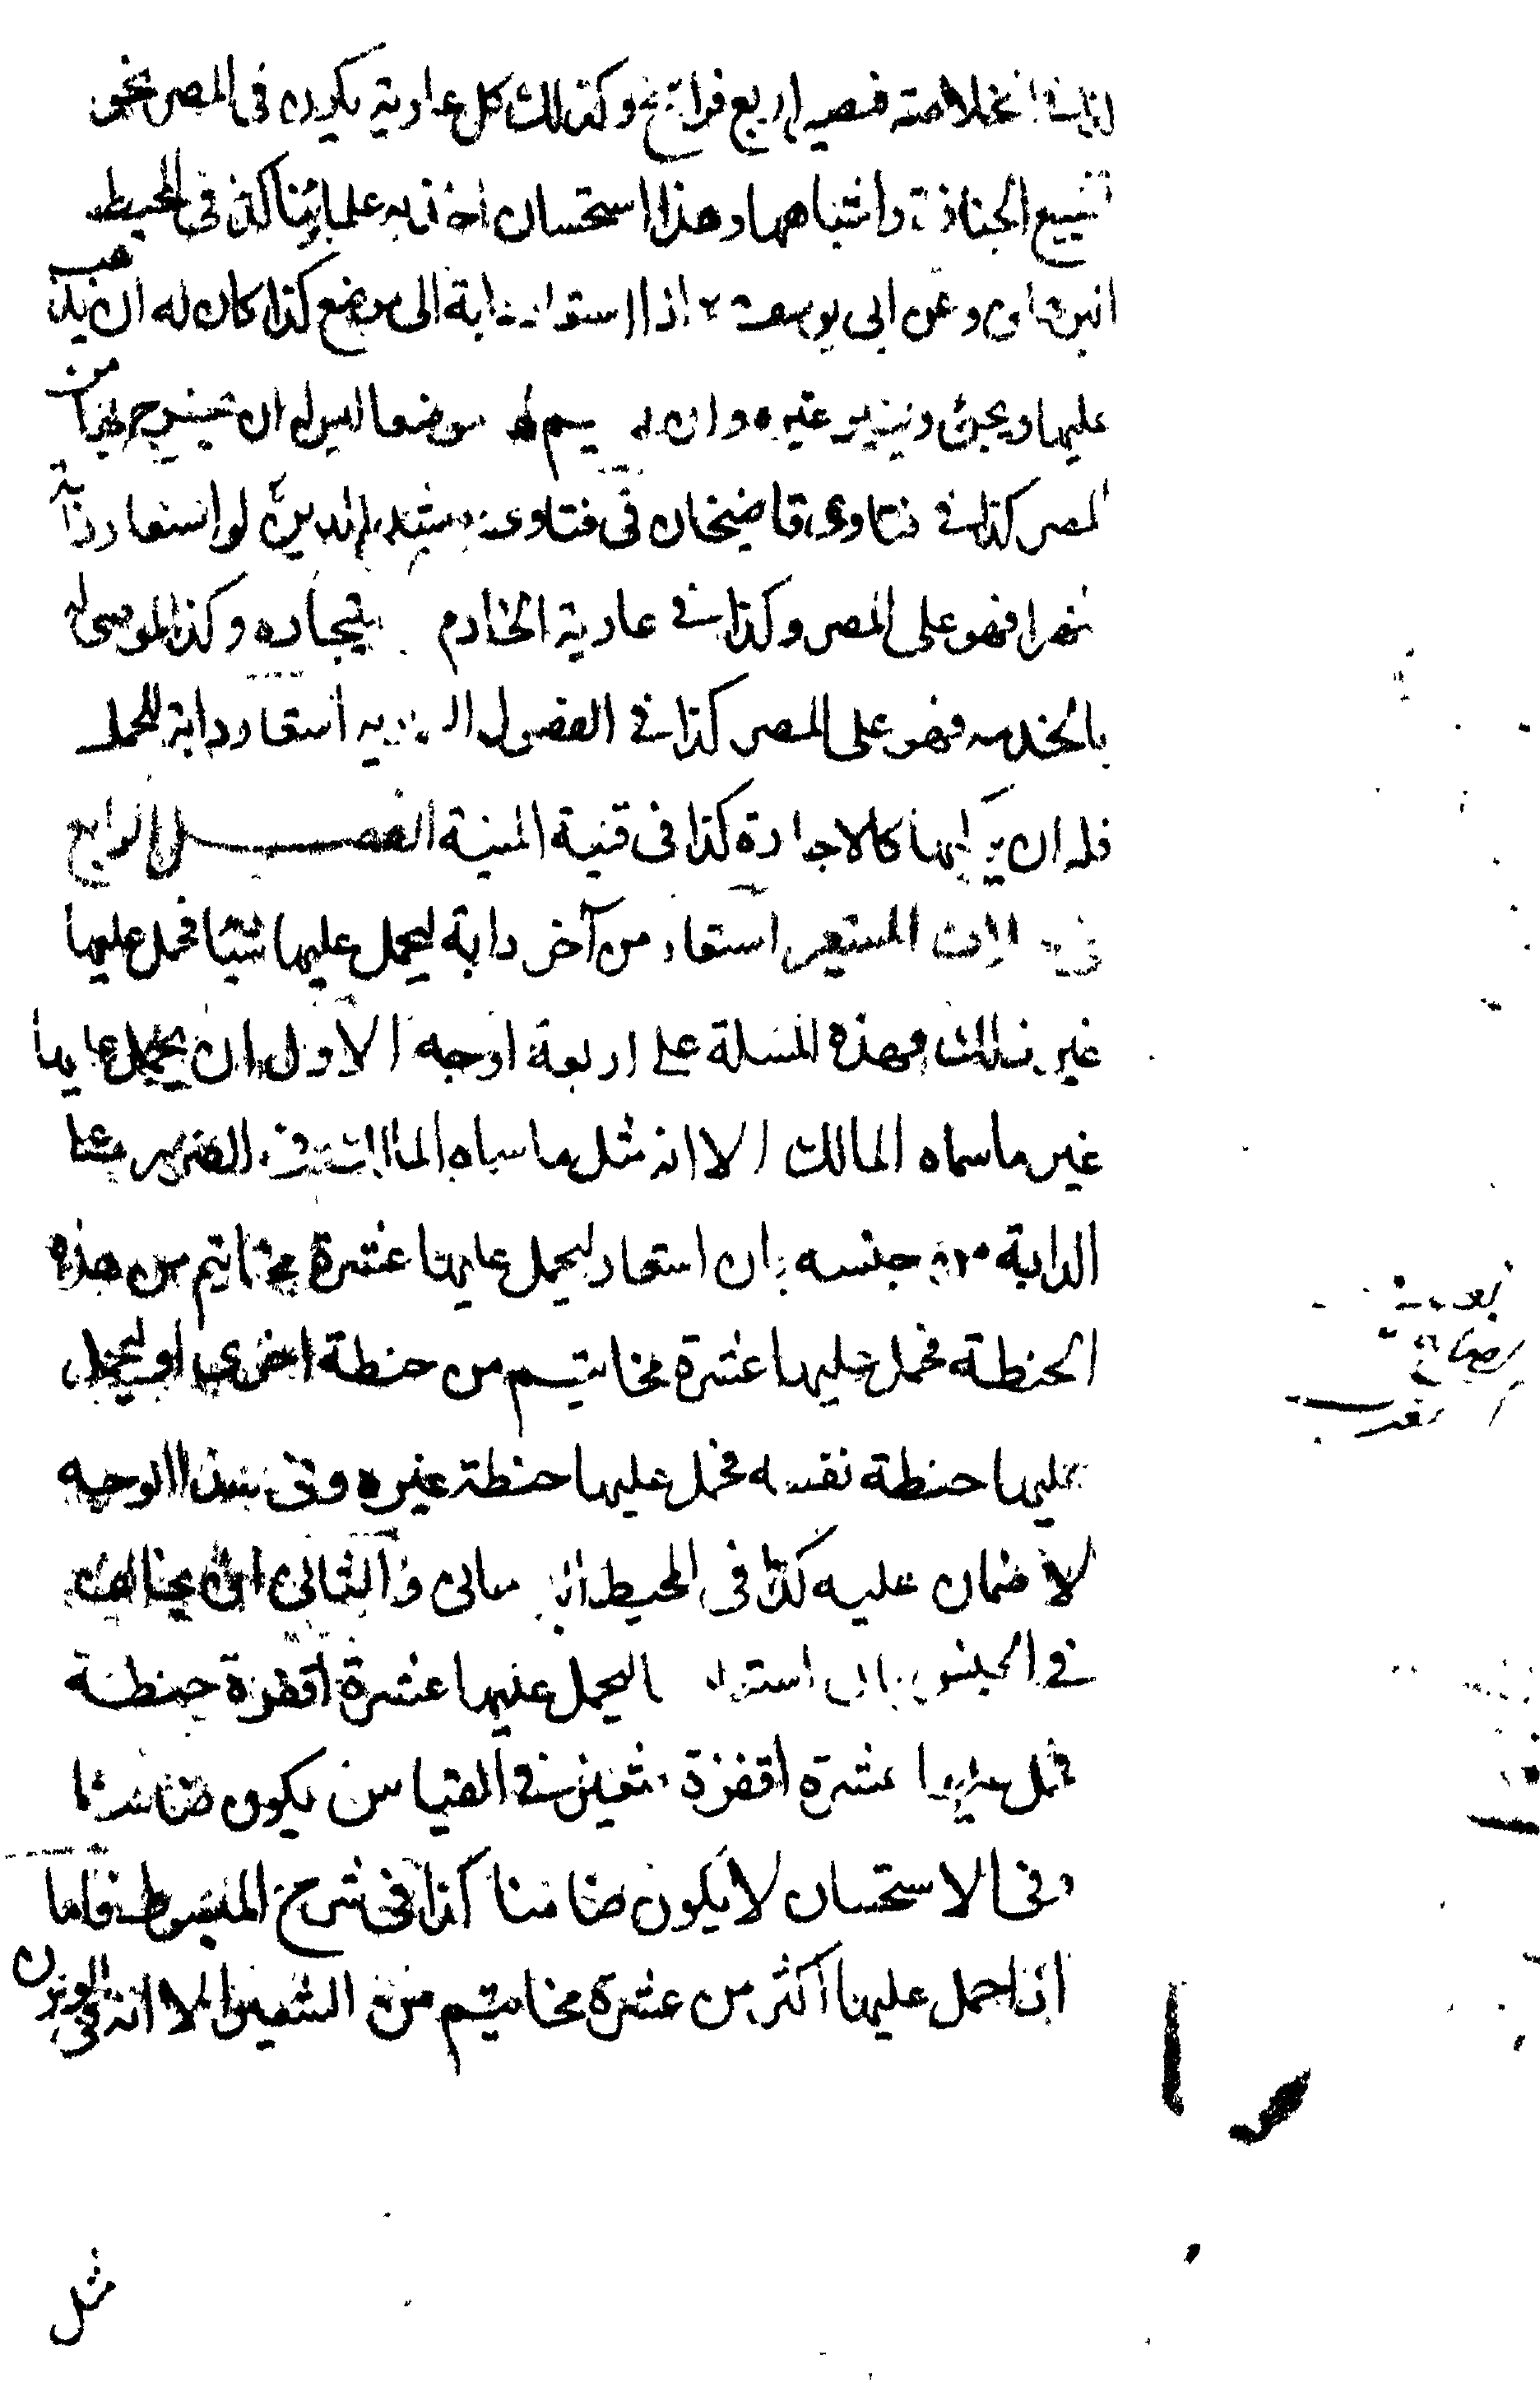 الخلاصة فنصير اربع فراسخ وكذلك كل عارية يكون فى المصر نحو
تشييع الجنازة واشباهها وهذا استحسان اخذ به علماؤنا كذا فى المحيط
وعن ابى يوسف اذا استعار دابة الى موضع كذا كان له ان يذهب
عليها ويجئ وان لم يسم له موضعا ليس له ان يخرج بها من
المصر كذا فى فتاوى قاضيخان فى فتاوى رشيد الدين لو استعار دابة
شهرا فهو على المصر وكذا فى عارية الخادم وكذا الموصى له
بالخدمه فهو على المصر كذا فى الفصول استعار دابة للحمل
فله ان يركبها كالاجارة كذا فى قنية المنية الفصل الرابع
فى خلاف المستعير استعار من آخر دابة ليحمل عليها شيئا فحمل عليها
غير ذلك فهذه المسلة على اربعة اوجه الاول ان يحمل عليها
غير ما سماه المالك الا انه مثل ما سماه المالك فى الضرر على
الدابة من جنسه بان استعار ليحمل عليها عشرة مخاتيم من هذه
الحنطة فحمل عليها عشرة مخاتيم من حنطة اخرى او ليحمل
عليها حنطة نفسه فحمل عليها حنطة غيره وفى هذا الوجه
لا ضمان عليه كذا فى المحيط والثانى ان يخالف
فى الجنس بان استعار ليحمل عليها عشرة اقفزة حنطة
فحمل عليها عشرة اقفزة شعير فى القياس يكون ضامنا
وفى الاستحسان لا يكون ضامنا كذا فى شرح المبسوط فاما
اذا حمل عليها اكثر من عشرة مخاتيم من الشعير الا انه فى الوزن
مثل